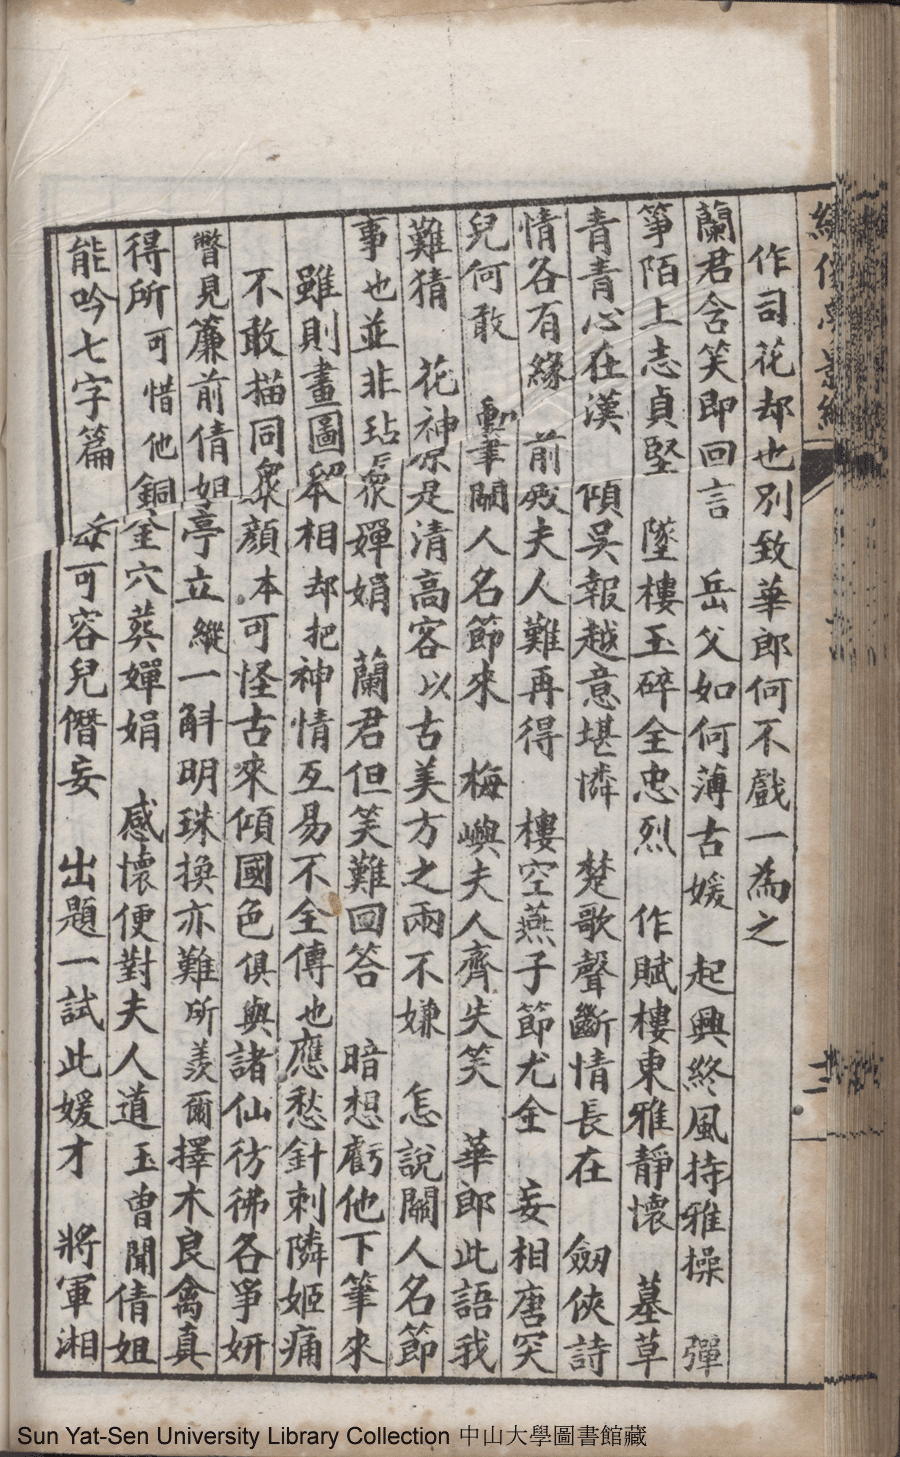 作司花却也別致華郎何不戲一為之
蘭君含笑即回言　岳父如何薄古媛　起興終風持雅操　彈
箏陌上志貞堅　墜樓玉碎全忠烈　作賦樓東雅靜懷　墓草
青青心在漢　傾吳報越意堪憐　楚歌聲斷情長在　劍俠詩
情各有緣　前夫人難再得　樓空燕子節尤全　妄相唐突
兒何敢　動筆關人名節來　梅嶼夫人齊失笑　華郎此語我
難猜　花神原是清高客以古美方之兩不嫌　怎說關人名節
事也並非玷衆嬋娟　蘭君但笑難回答　暗想虧他下筆來
雖則畫圖相却把神情互易不全傳也應愁針刺隣姬痛
不敢描同衆顏本可怪古來傾國色俱與諸仙彷彿各爭妍
瞥見簾前倩姐亭立縱一斛明珠換亦難所羨爾擇木良禽真
得所可惜他銅金穴葬嬋娟　感懷便對夫人道玉曾聞倩姐
能吟七字篇　可容兒僭妄　出題一試此媛才　將軍湘
Sun Yat-Sen University Library Collection 中山大學圖書館藏